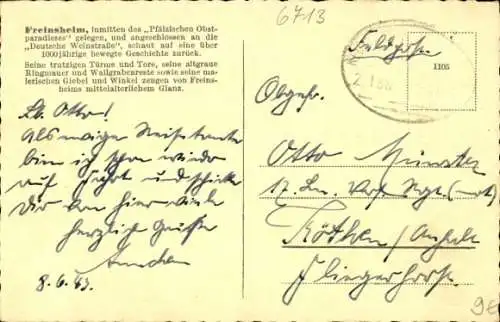 6713
Freinsheim, inmitten des „Pfälzischen Obst-
paradieses" gelegen, und angeschlossen an die
„Deutsche Weinstraße", schaut auf eine über
1000jährige bewegte Geschichte zurück.
Seine trutzigen Türme und Tore, seine altgraue
Ringmauer und Wallgrabenreste sowie seine ma-
lerischen Giebel und Winkel zeugen von Freins-
heims mittelalterlichem Glanz.
Feldpost
1105
Lb. Otto!
Als
bin ich schon wieder
auf Fahrt und schicke
Dir von hier viele
herzliche Grüße
Annchen
8.6.43.
Obgefr.
Otto Münster
17. Ln.
Köthen/Anhalt
Fliegerhorst.